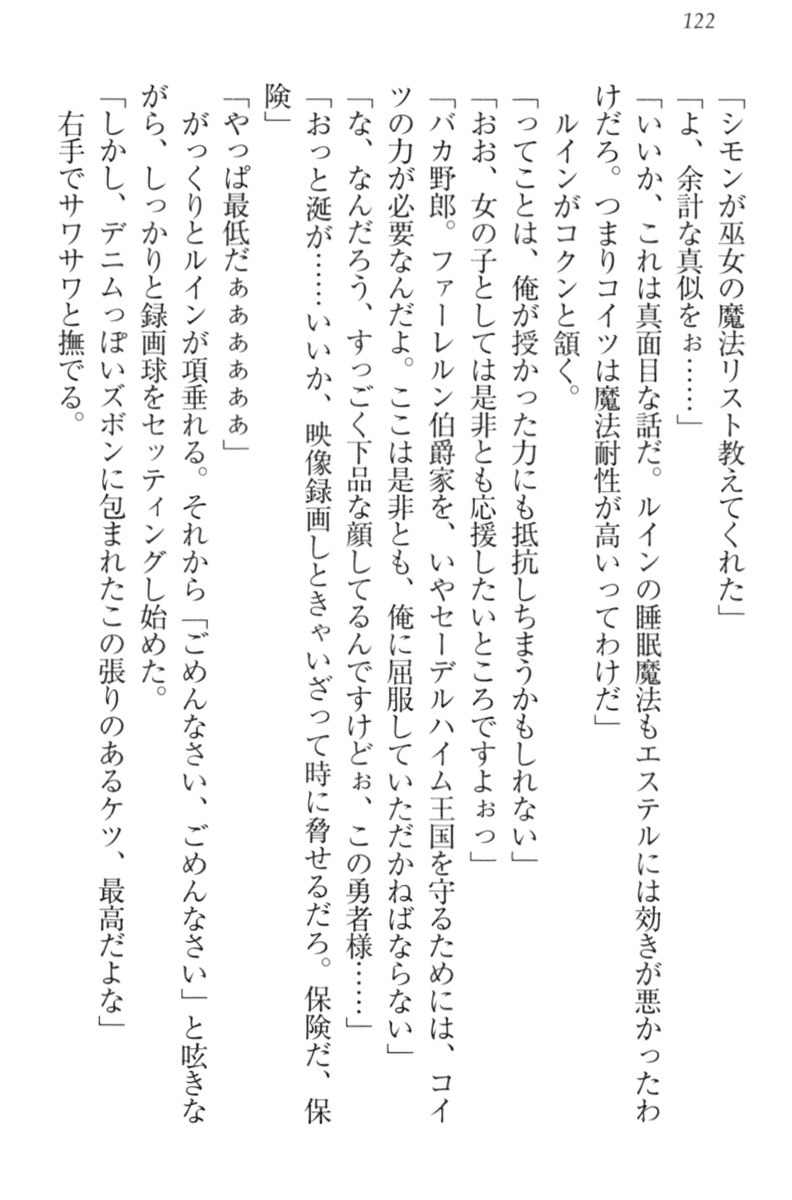 122
「シモンが巫女の魔法リスト教えてくれた」
「よ、余計な真似をぉ……」
「いいか、これは真面目な話だ。ルインの睡眠魔法もエステルには効きが悪かったわ
けだろ。つまりコイツは魔法耐性が高いってわけだ」
ルインがコクンと頷く。
「ってことは、俺が授かった力にも抵抗しちまうかもしれない」
「おお、女の子としては是非とも応援したいところですよぉっ」
「バカ野郎。ファーレルン伯爵家を、いやセーデルハイム王国を守るためには、コイ
ツの力が必要なんだよ。ここは是非とも、俺に屈服していただかねばならない」
「な、なんだろう、すっごく下品な顔してるんですけどぉ、この勇者様……」
「おっと涎が……いいか、映像録画しときゃいざって時に脅せるだろ。保険だ、保
険」
「やっぱ最低だぁぁぁぁぁぁ」
がっくりとルインが項垂れる。それから「ごめんなさい、ごめんなさい」と呟きな
がら、しっかりと録画球をセッティングし始めた。
「しかし、デニムっぽいズボンに包まれたこの張りのあるケツ、最高だよな」
右手でサワサワと撫でる。